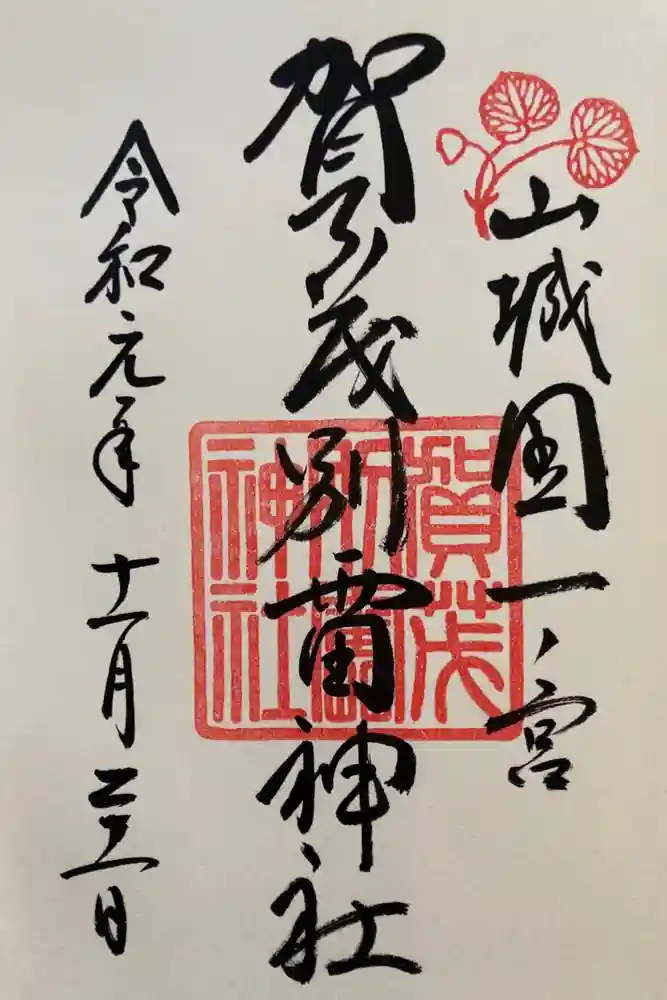 山城国一ノ宮
賀茂別雷神社
賀茂
別雷
神社
令和元年十一月二十一日